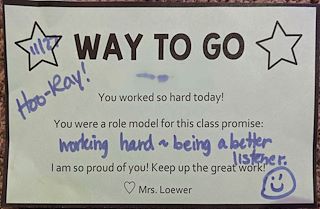 11/2
WAY TO GO
Hoo-Ray!
You worked so hard today!
You were a role model for this class promise:
working hard ~ being a better
listener.
I am so proud of you! Keep up the great work!
♡ Mrs. Loewer